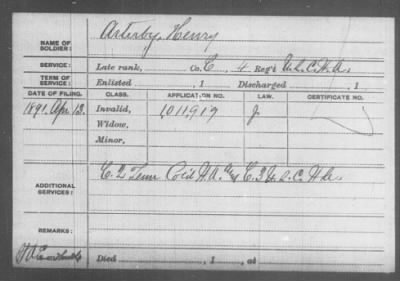 NAME OF SOLDIER: Asterby, Henry
SERVICE: Late rank, Co. C, 4 Reg't U.S.C.H.A.
TERM OF SERVICE: Enlisted , 1 Discharged , 1
DATE OF FILING. CLASS. APPLICATION NO. LAW. CERTIFICATE NO.
1891, Apr 13. Invalid, 1,011,919 J.
Widow,
Minor,
ADDITIONAL SERVICES: C. 2 Tenn Col'd H.A. & C. 3 U.S.C. H.A.
REMARKS:
Died , 1 , at